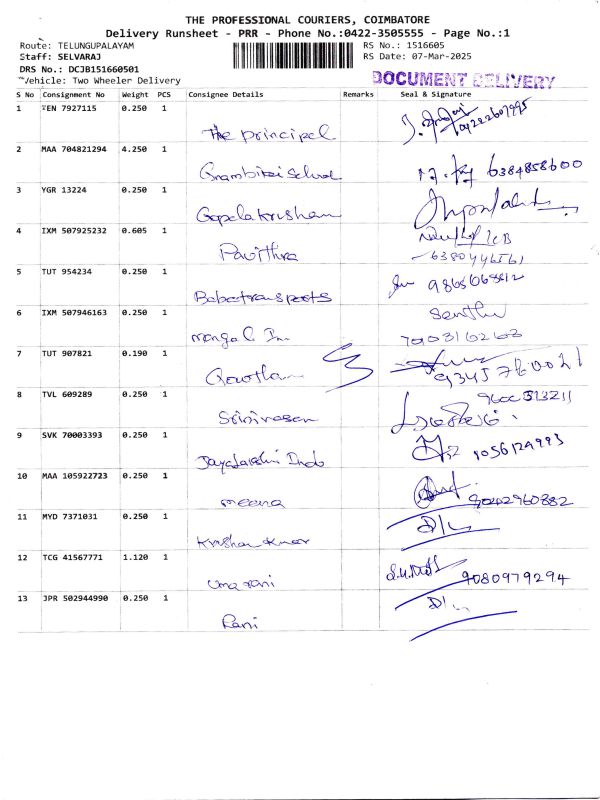 THE PROFESSIONAL COURIERS, COIMBATORE
Delivery Runsheet - PRR - Phone No.:0422-3505555 - Page No.:1
Route: TELUNGUPALAYAM
RS No.: 1516605
Staff: SELVARAJ
RS Date: 07-Mar-2025
DRS No.: DCJB151660501
Vehicle: Two Wheeler Delivery
DOCUMENT DELIVERY
S No Consignment No Weight PCS Consignee Details Remarks Seal & Signature
1 TEN 7927115 0.250 1
The principal
2 MAA 704821294 4.250 1
School 6384858600
3 YGR 13224 0.250 1
Gopalakrishan
4 IXM 507925232 0.605 1
Pavithra
5 TUT 954234 0.250 1
Babatransports
6 IXM 507946163 0.250 1
Senthil
mangal
7 TUT 907821 0.190 1
Gowtham
8 TVL 609289 0.250 1
Srinivasan
9 SVK 70003393 0.250 1
10 MAA 105922723 0.250 1
meena 9042960882
11 MYD 7371031 0.250 1
12 TCG 41567771 1.120 1
Uma rani 9080979294
13 JPR 502944990 0.250 1
Rani